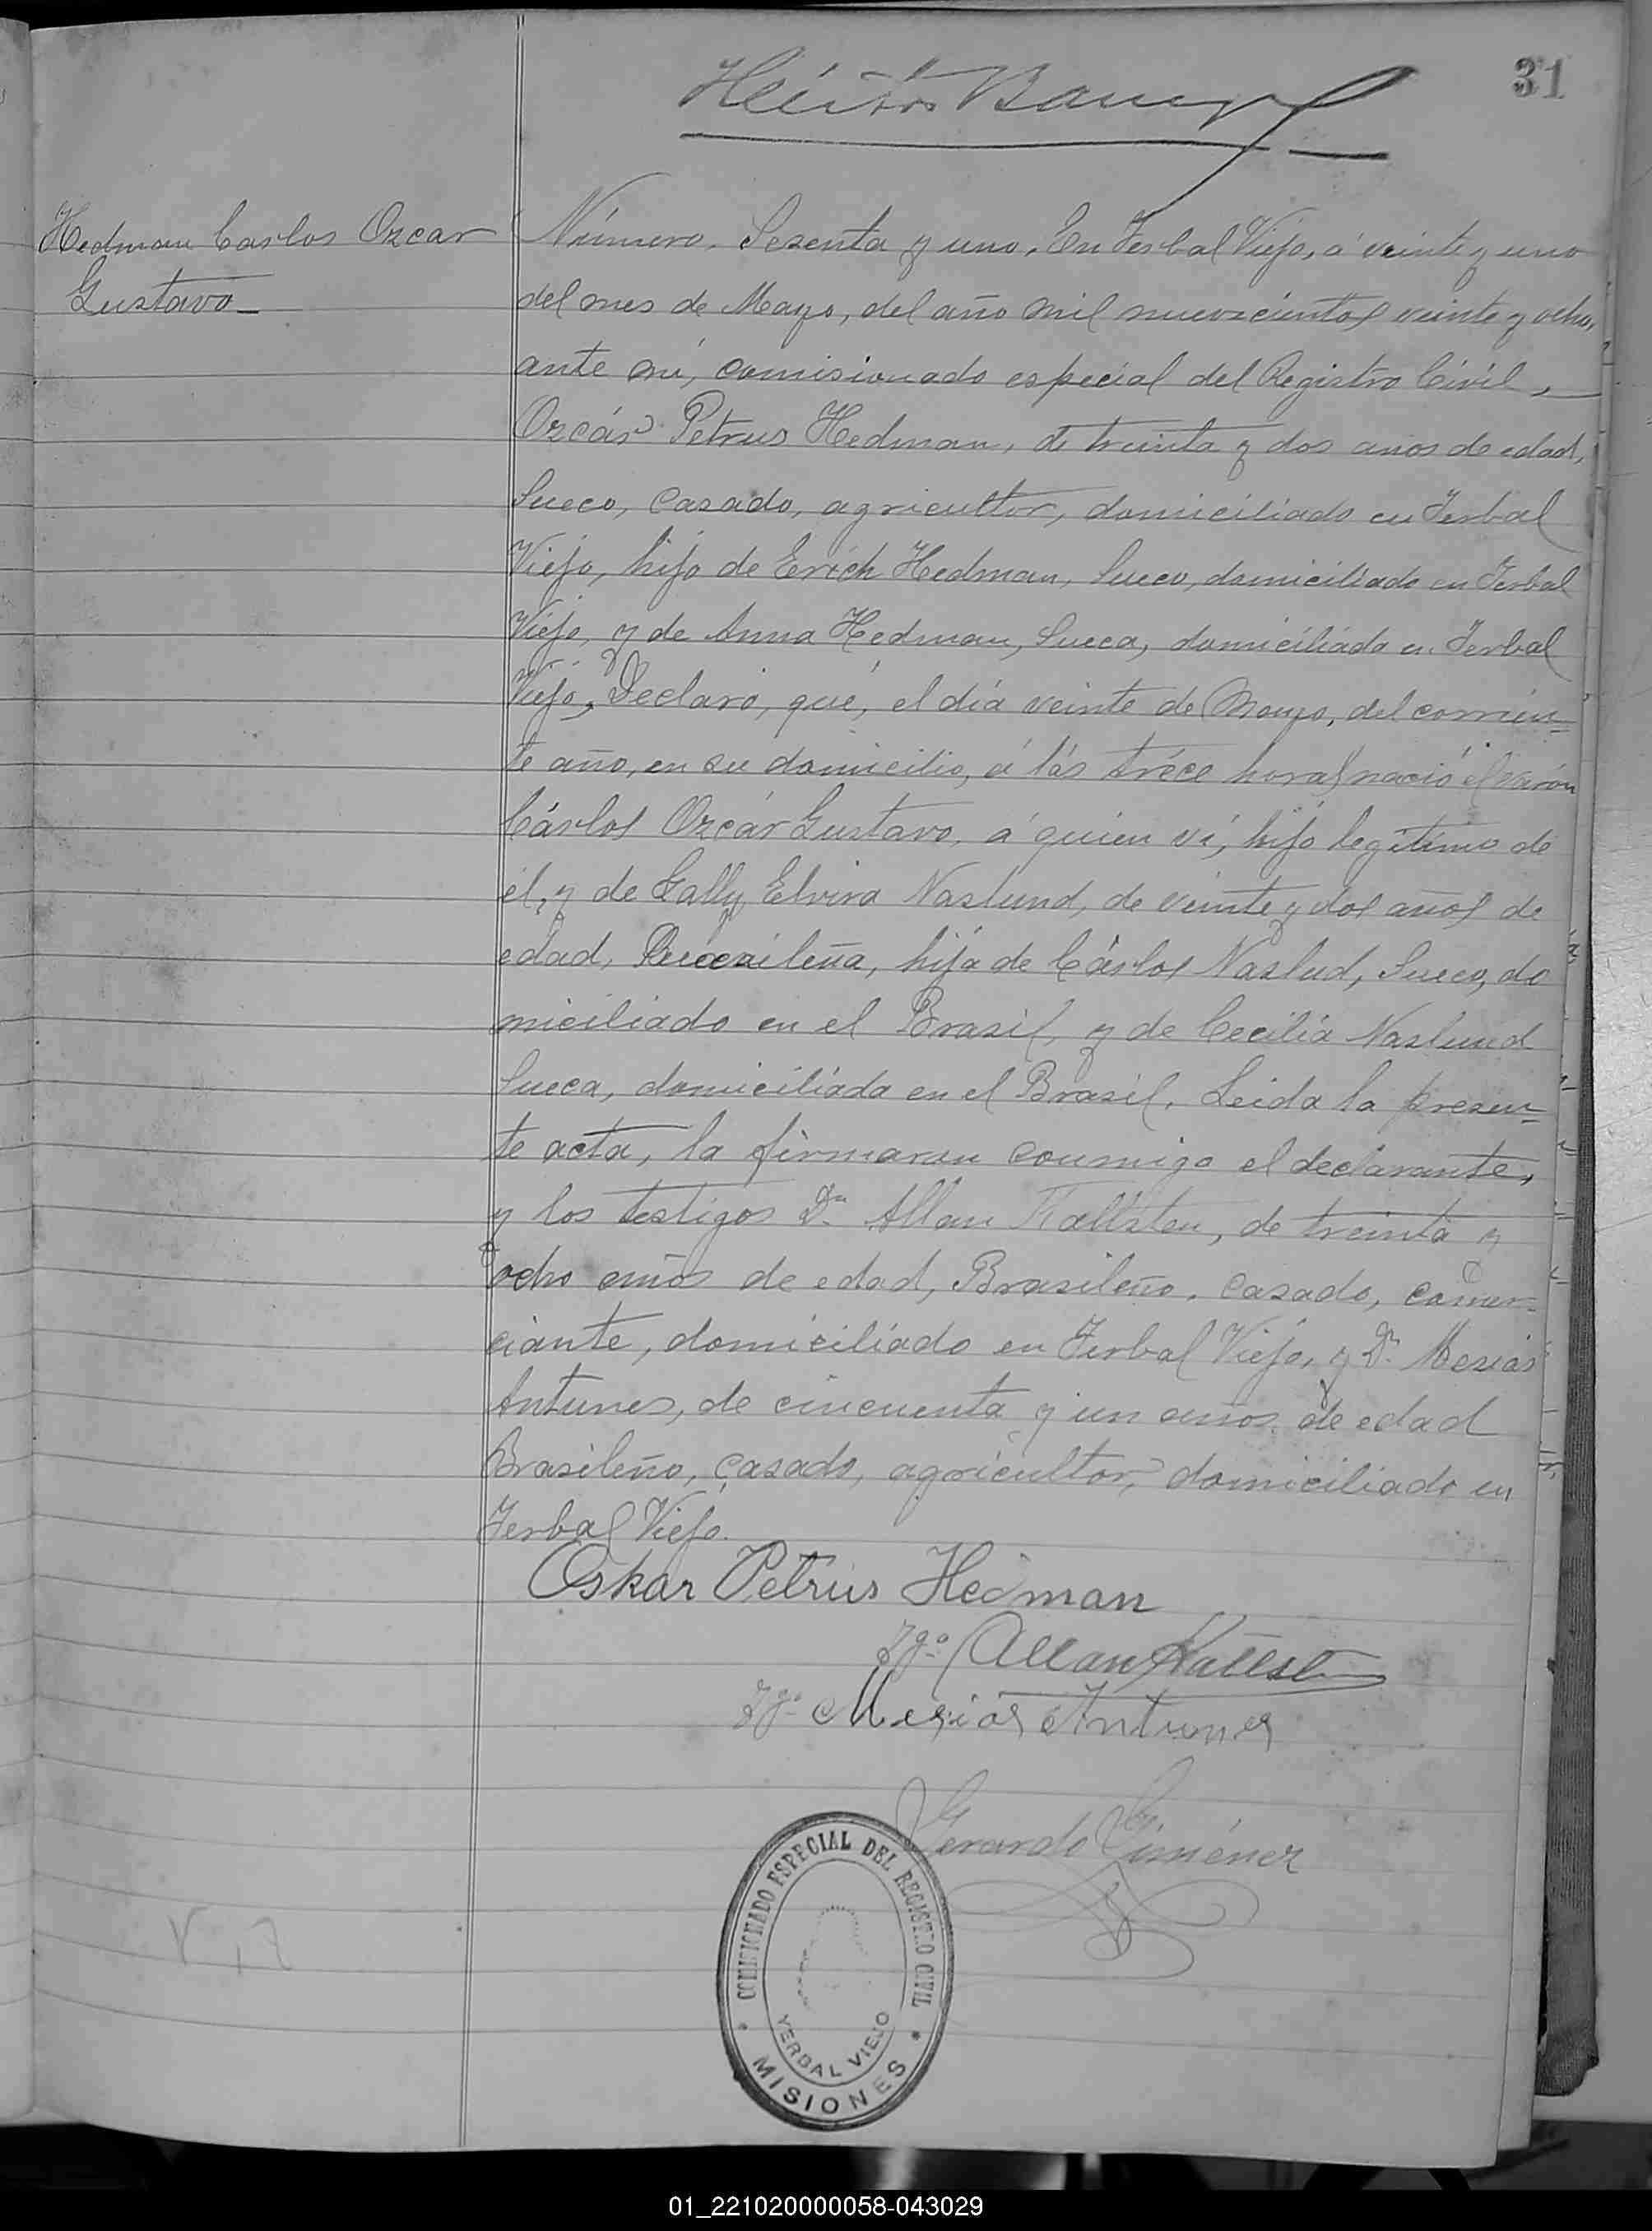 31
Hedman Carlos Ozcar
Gustavo
Número. Sesenta y uno. En Jerbal Viejo, á veinte y uno
del mes de Mayo, del año mil nuevecientos veinte y ocho,
ante mí, comisionado especial del Registro Civil,
Ozcár Petrus Hedman, de treinta y dos años de edad,
Sueco, casado, agricultor, domiciliado en Jerbal
Viejo, hijo de Erich Hedman, Sueco, domiciliado en Jerbal
Viejo, y de Anna Hedman, Sueca, domiciliada en Jerbal
Viejo, Declaró, qué, el día veinte de Mayo, del corrien=
te año, en su domicilio, á lás tréce horas nació el varón
Cárlos Ozcár Gustavo, á quien ví, hijo legítimo de
él, y de Gally Elvira Naslund, de veinte y dos años de
edad, hija de Cárlos Naslud, Sueco, do
miciliado en el Brasil, y de Cecilia Naslund
Sueca, domiciliada en el Brasil. Leida la presen=
te acta, la firmaran conmigo el declarante,
y los testigos Dn. Allan Kallsten, de treinta y
ocho años de edad, Brasileño, casado, comer=
ciante, domiciliado en Jerbal Viejo, y Dn. Mesías
Antunes, de cincuenta y un años de edad
Brasileño, casado, agricultor, domiciliado en
Jerbal Viejo.
Oskar Petrus Hedman
Tgo. Allan Kallsten
Tgo. Mesias Antunes
Gerardo Giménez
COMISIONADO ESPECIAL DEL REGISTRO CIVIL
YERBAL VIEJO
MISIONES
01_221020000058-043029